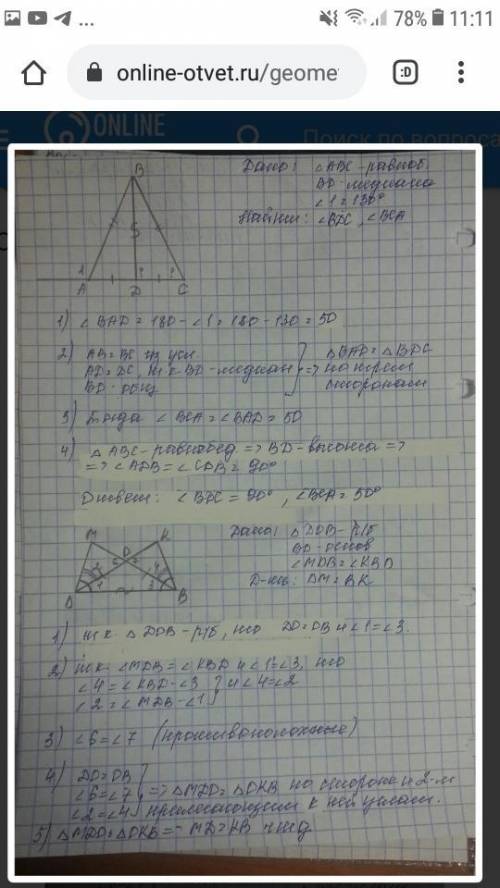 78% 11:11
online-otvet.ru/geomet
ONLINE
Поиск по вопроса
Дано: △ABC - равноб.
BD - медиана
∠1 = 130°
Найти: ∠BDC, ∠BCA
B
1
A D C
1) ∠BAD = 180 - ∠1 = 180 - 130 = 50
2) AB = BC из усл.
AD = DC, т.к BD - медиан
BD - общ
} => △BAD = △BDC
по трем
сторонам
3) Тогда ∠BCA = ∠BAD = 50
4) △ABC - равнобед. => BD - высота =>
=> ∠ADB = ∠CDB = 90°
Ответ: ∠BDC = 90°, ∠BCA = 50°
M K
O
B
Дано: △DOB - р/б
BD - основ
∠MDB = ∠KBD
Д-ть: DM = BK
1) т.к. △DOB - р/б, то DO = OB и ∠1 = ∠3.
2) т.к. ∠MDB = ∠KBD и ∠1 = ∠3, то
∠4 = ∠KBD - ∠3 } и ∠4 = ∠2
∠2 = ∠MDB - ∠1
3) ∠6 = ∠7 (противоположные)
4) DO = OB }
∠6 = ∠7 => △MDO = △OKB по стороне и 2-м
∠2 = ∠4 прилегающим к ней углам.
5) △MDO = △OKB => MD = KB чтд.